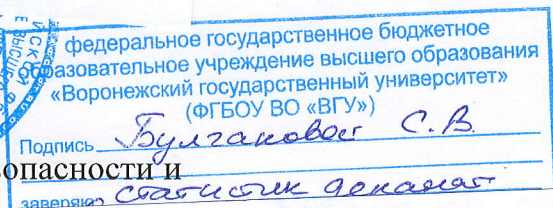 федеральное государственное бюджетное
образовательное учреждение высшего образования
«Воронежский государственный университет»
(ФГБОУ ВО «ВГУ»)
Подпись Булгаковой С.В.
опасности и
заверяю статистик деканат